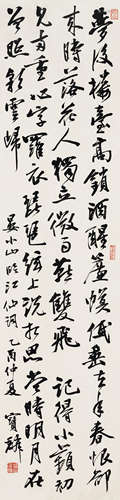 夢後樓臺高鎖酒醒簾幕低垂去年春恨却
來時落花人獨立微雨燕雙飛 記得小蘋初
見兩重心字羅衣琵琶絃上說相思當時明月在
曾照彩雲歸 晏小山臨江仙詞 乙酉仲夏 寶麟